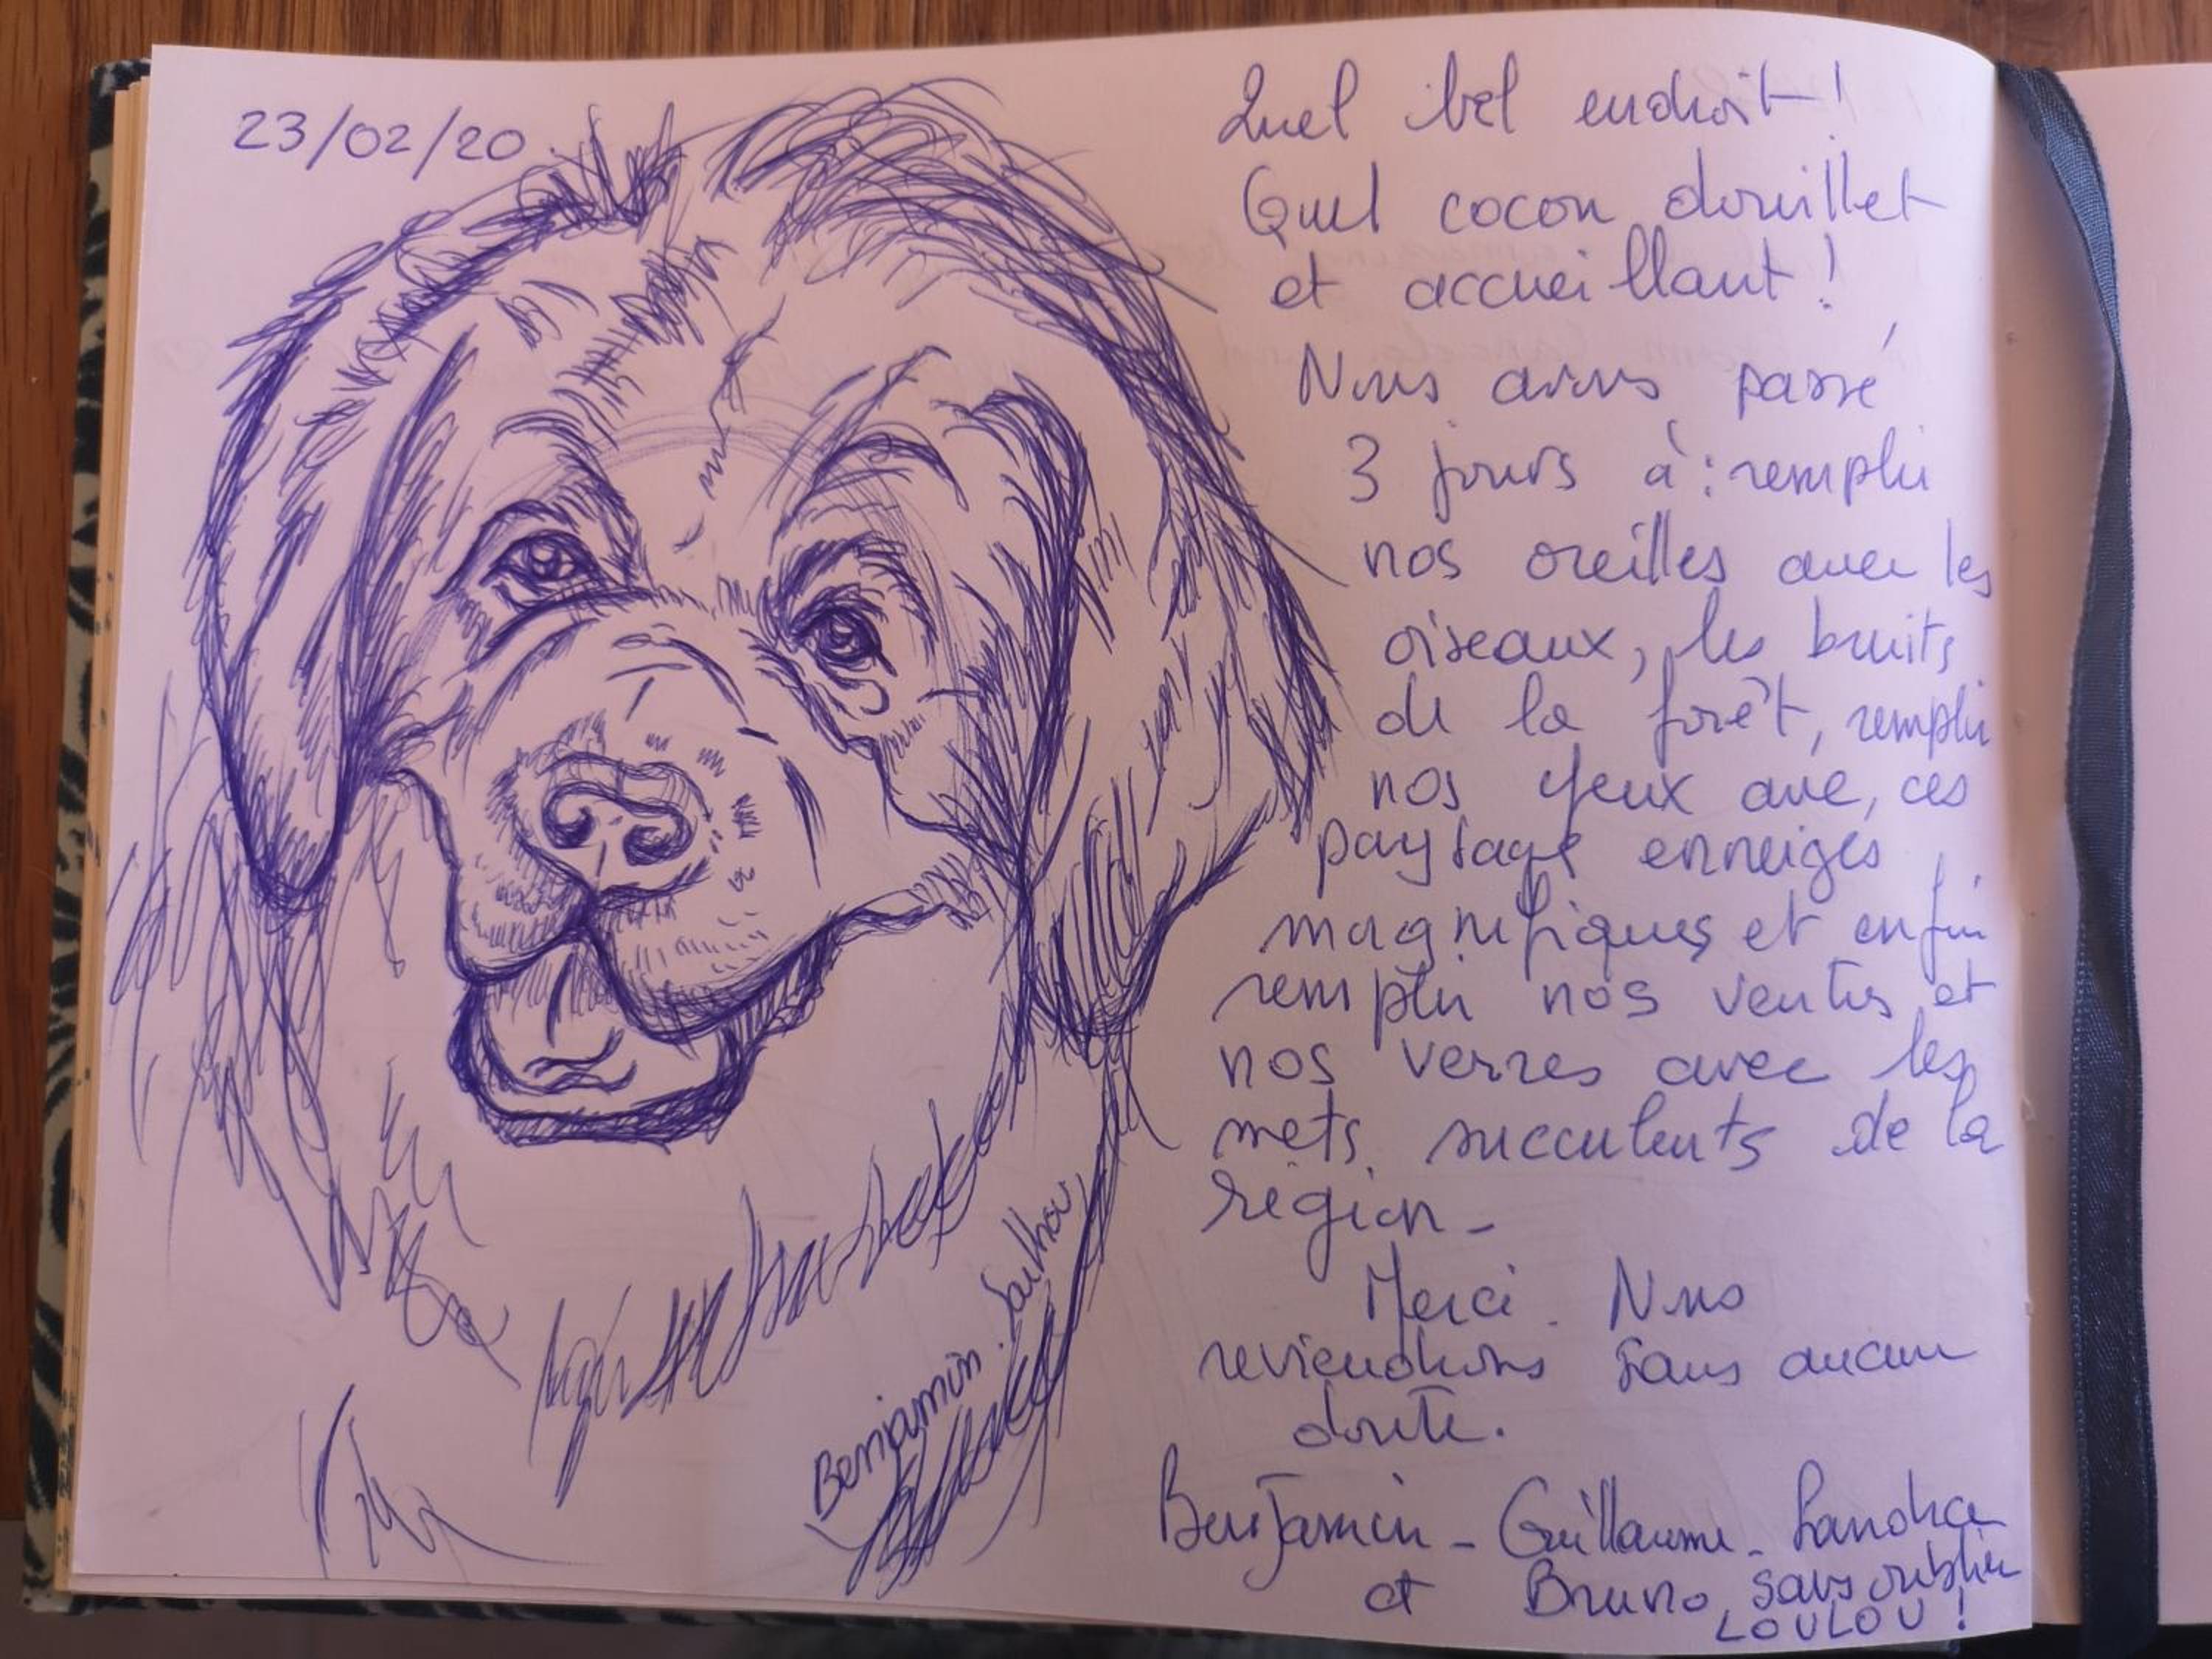 23/02/20
Quel bel endroit !
Quel cocon douillet
et accueillant !
Nous avons passé
3 jours à : remplir
nos oreilles avec les
oiseaux, les bruits
de la forêt, remplir
nos yeux avec, ces
paysages enneigés
magnifiques et enfin
remplir nos ventres et
nos verres avec les
mets succulents de la
région -
Merci. Nous
reviendrons sans aucun
doute.
Benjamin - Guillaume - Sandrice
et Bruno, sans oublier
LOULOU !
Benjamin.